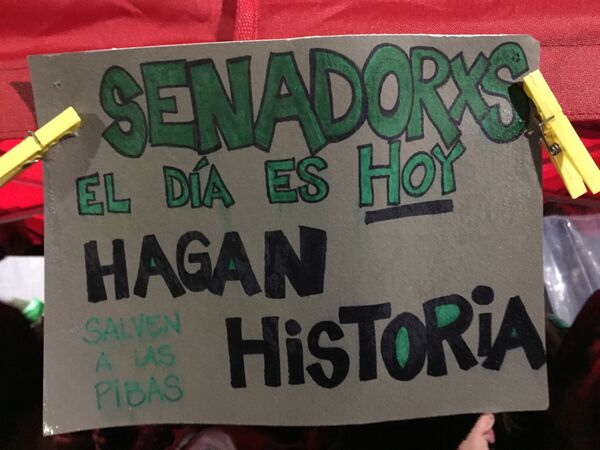 SENADORXS
EL DÍA ES HOY
HAGAN
HiSTORiA
SALVEN
A LAS
PIBAS